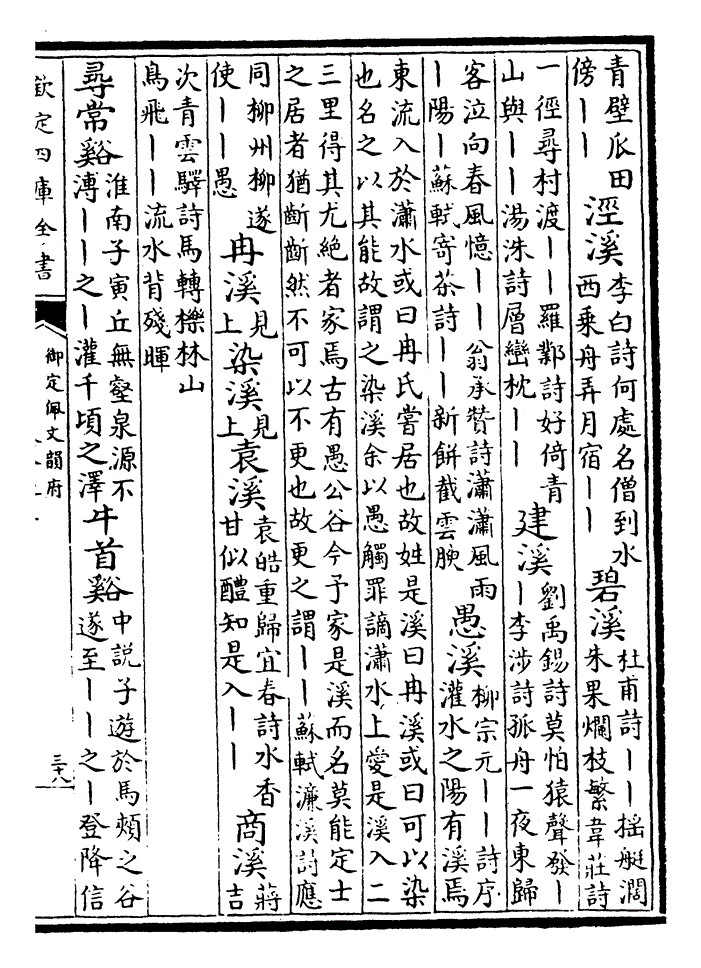 青壁瓜田傍丨丨 涇溪 李白詩何處名僧到水西乘舟弄月宿丨丨 碧溪 杜甫詩丨丨揺艇濶朱果爛枝繁韋莊詩
一徑尋村渡丨丨羅鄴詩好倚青山與丨丨湯洙詩層巒枕丨丨 建溪 劉禹錫詩莫怕猿聲發丨丨李涉詩孤舟一夜東歸
客泣向春風憶丨丨翁承贊詩瀟瀟風雨丨陽丨蘇軾寄茶詩丨丨新餅截雲腴 愚溪 柳宗元丨丨詩序灌水之陽有溪焉
東流入於瀟水或曰冉氏嘗居也故姓是溪曰冉溪或曰可以染也名之以其能故謂之染溪余以愚觸罪謫瀟水上愛是溪入二
三里得其尤絶者家焉古有愚公谷今予家是溪而名莫能定士之居者猶齗齗然不可以不更也故更之謂丨丨蘇軾濂溪詩應
同柳州柳遂使丨丨愚 冉溪 見上 染溪 見上 袁溪 袁皓重歸宜春詩水香甘似醴知是入丨丨 商溪 蔣吉
次青雲驛詩馬轉櫟林山鳥飛丨丨流水背殘暉
尋常谿 淮南子寅丘無壑泉源不溥丨丨之丨灌千頃之澤 牛首谿 中説子遊於馬頰之谷遂至丨丨之丨登降信
欽定四庫全書
御定佩文韻府
三十八